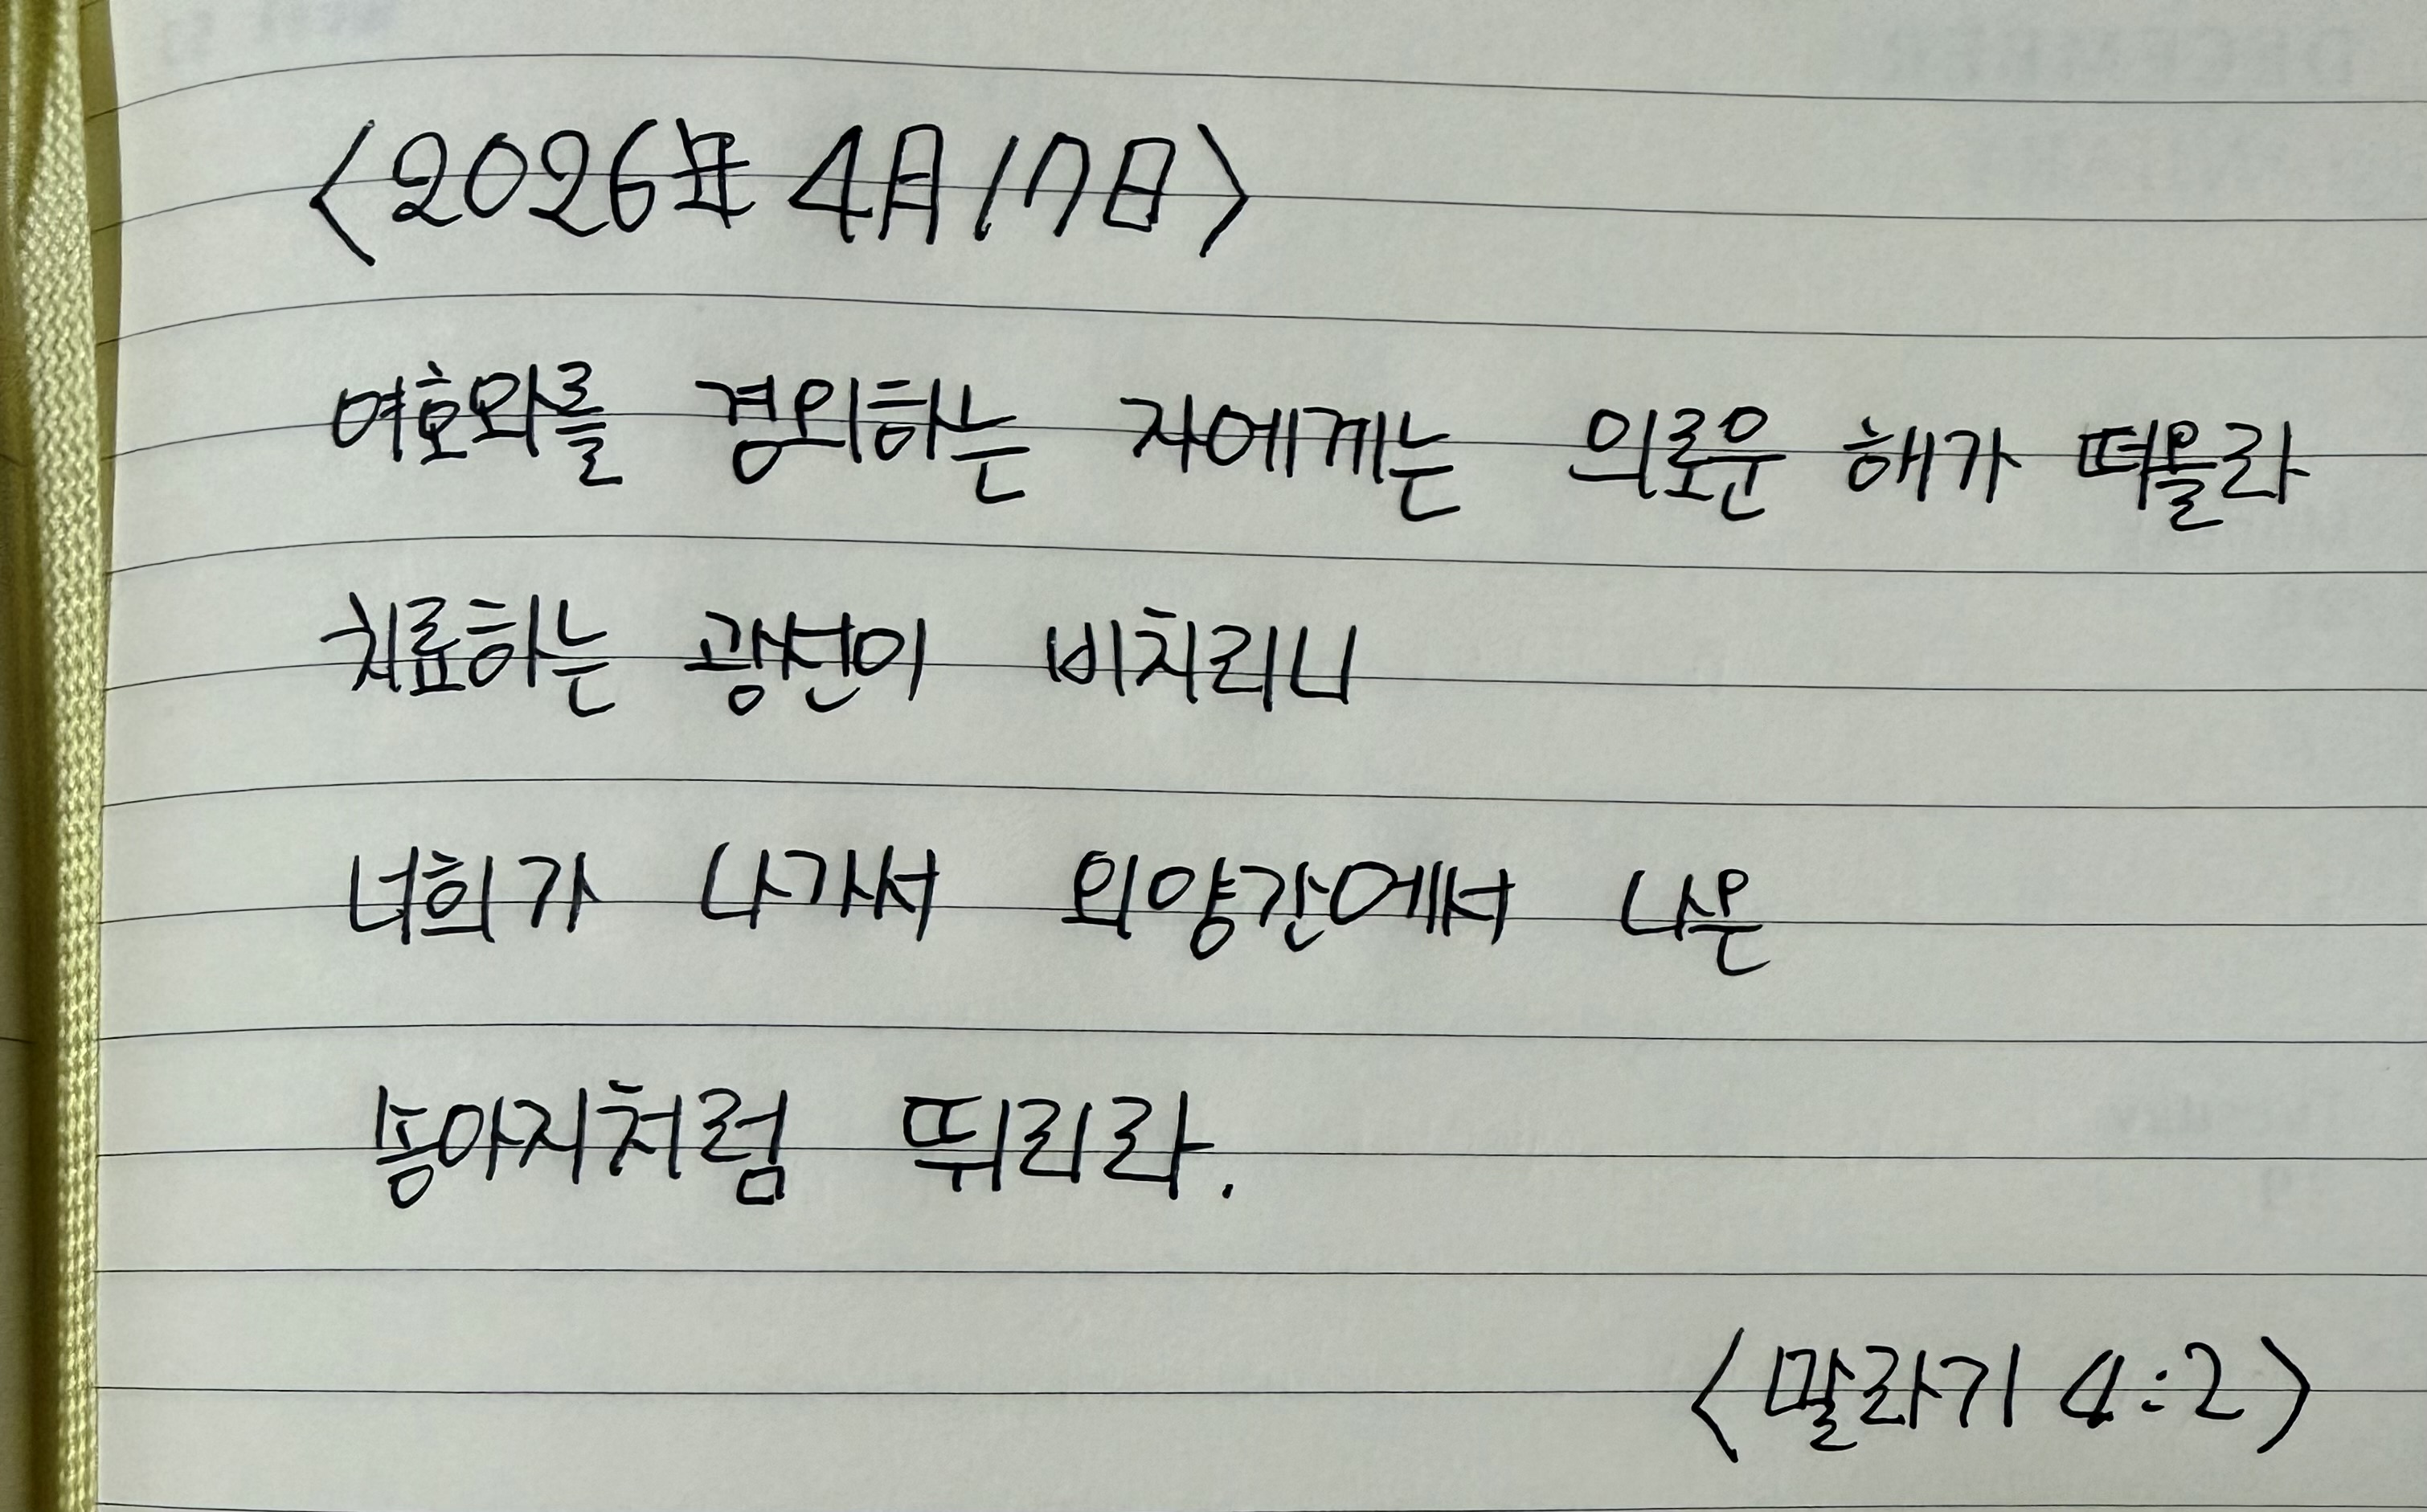 <2026年 4月 17日>
여호와를 경외하는 자에게는 의로운 해가 떠올라
치료하는 광선이 비치리니
너희가 나가서 외양간에서 나온
송아지처럼 뛰리라.
<말라기 4:2>